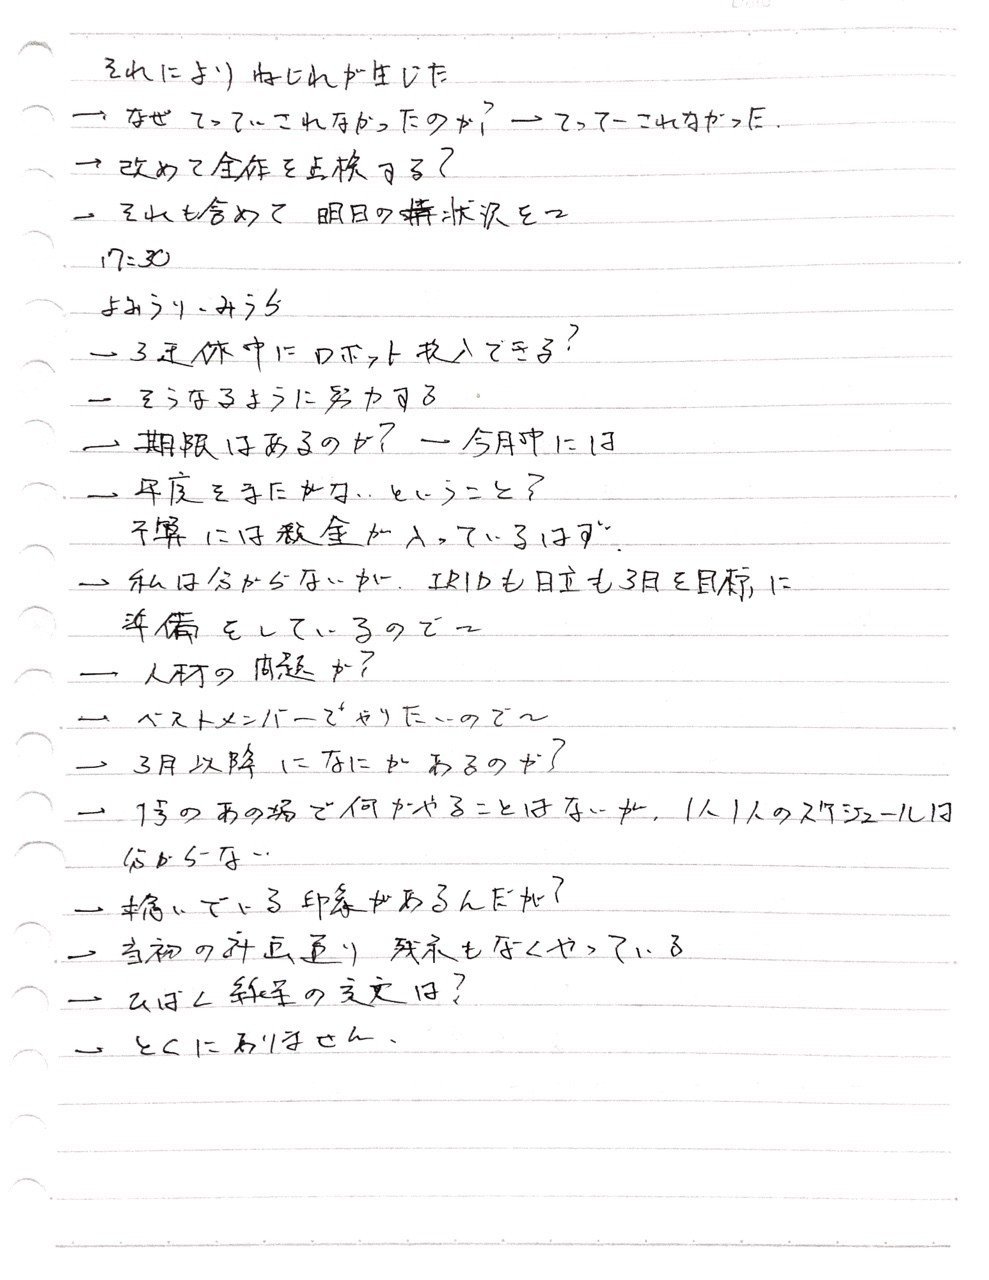 それによりねじれが生じた
→ なぜ てっていこれなかったのか? → てってーこれなかった.
→ 改めて全体を点検する?
→ それも含めて 明日の状況を〜
17:30
よみうり・みうら
→ 3連休中にロボット投入できる?
→ そうなるように努力する
→ 期限はあるのか? → 今月中には
→ 年度をまたがない、ということ?
予算には税金が入っているはず.
→ 私は分からないが、IRIDも日立も3月を目標に
準備をしているので〜
→ 人材の問題か?
→ ベストメンバーでやりたいので〜
→ 3月以降になにかあるのか?
→ 1号のあの場で何かやることはないが、1人1人のスケジュールは
分からない
→ 急いでいる印象があるんだが?
→ 当初の計画通り 残業もなくやっている
→ ひばく線量の変更は?
→ とくにありません.